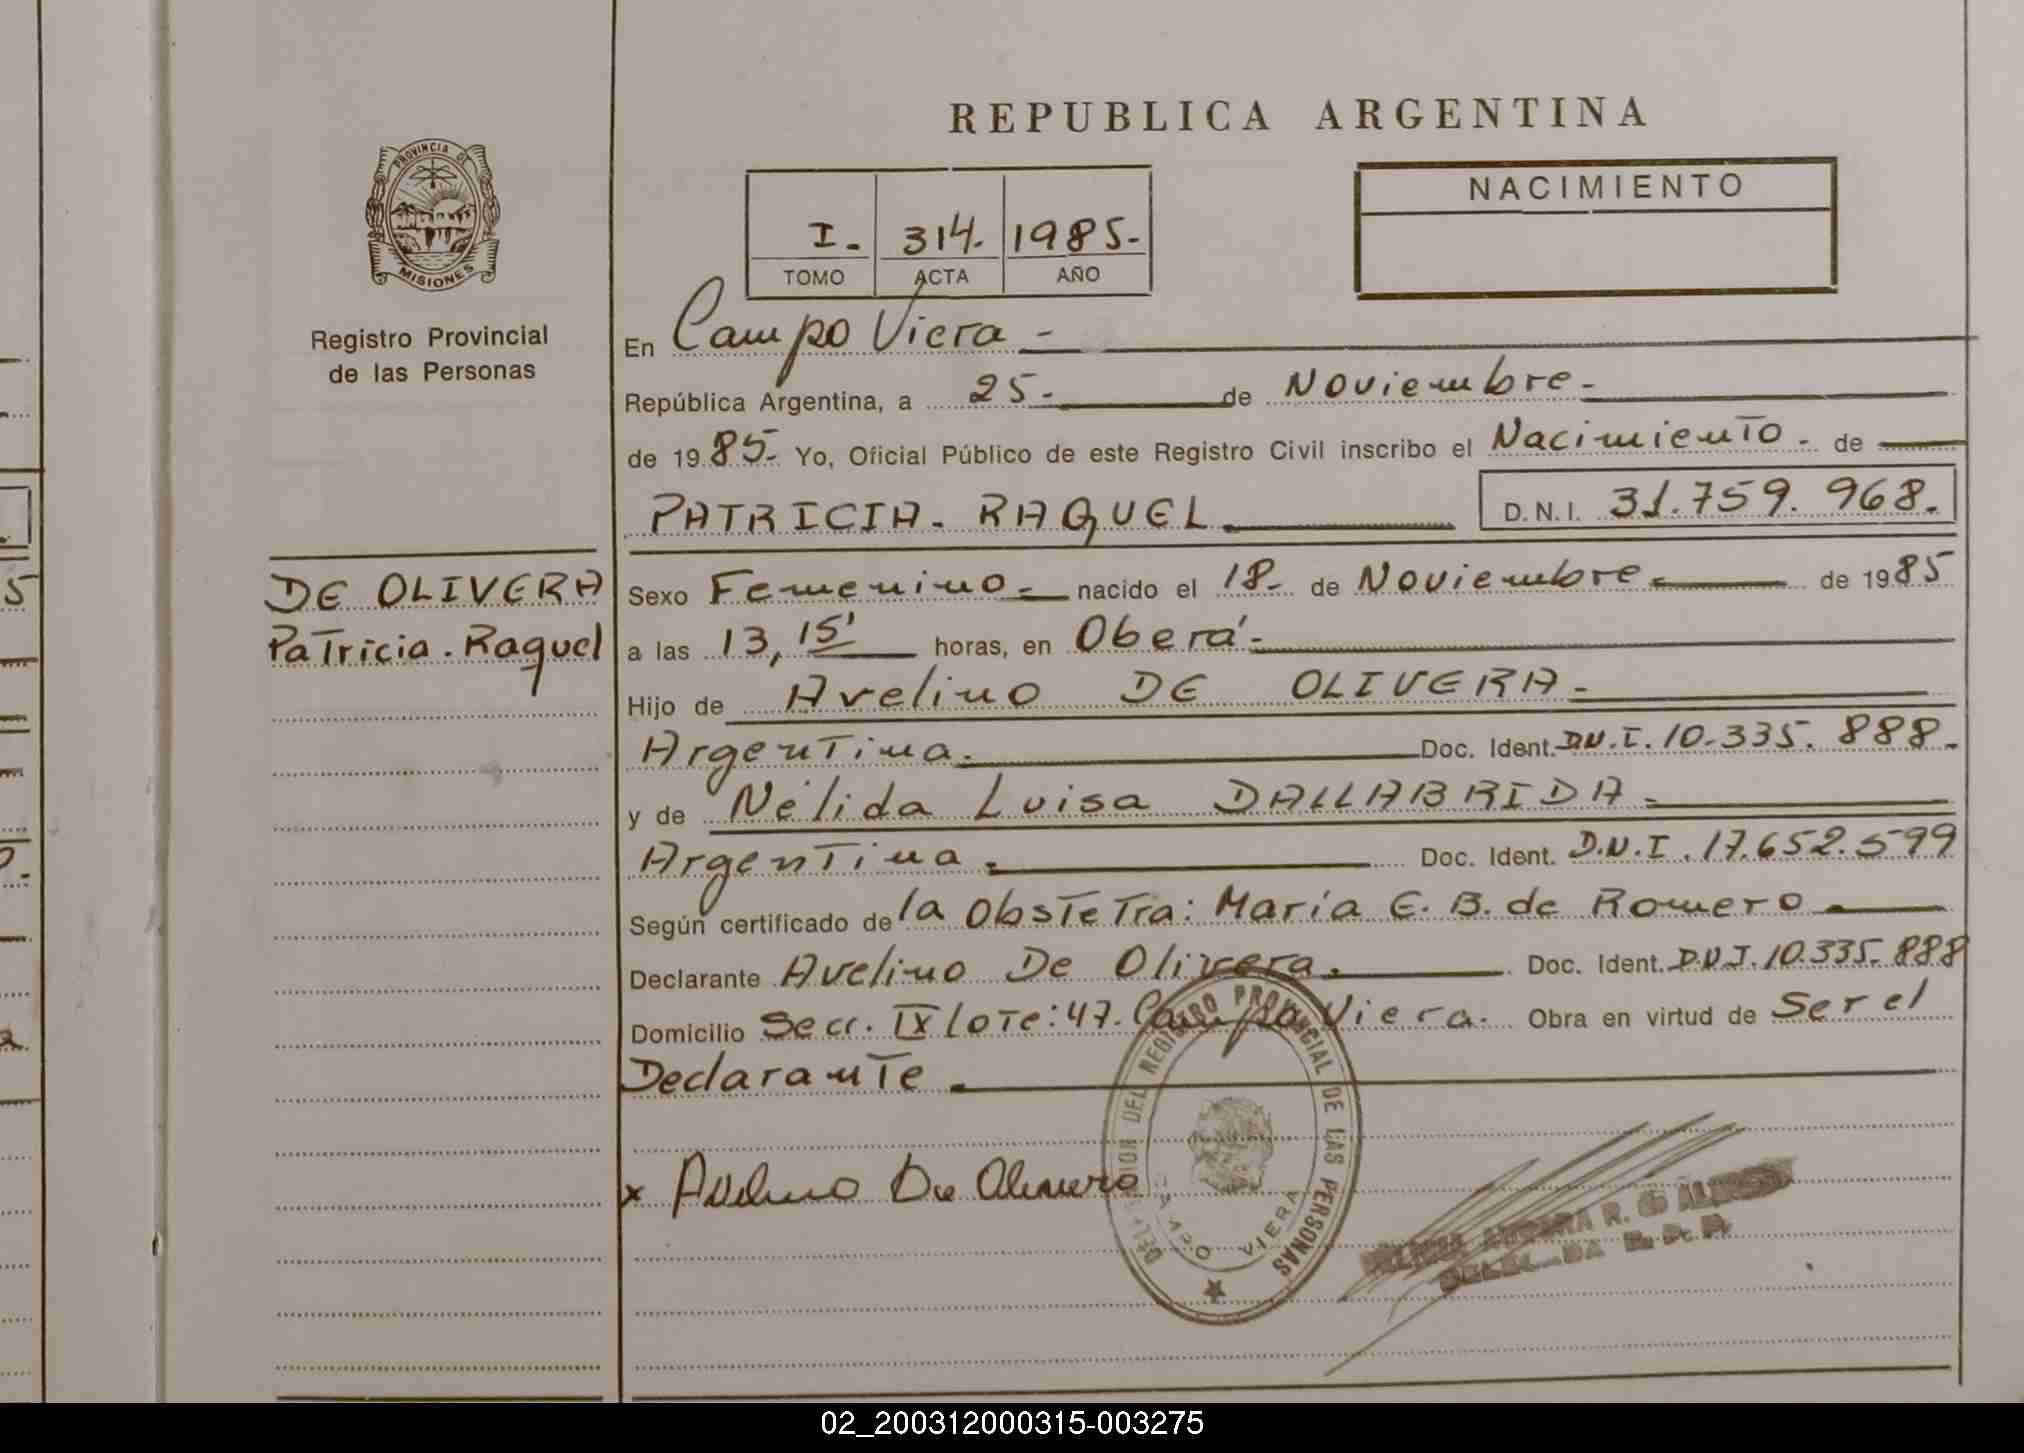 REPUBLICA ARGENTINA
PROVINCIA DE
MISIONES
Registro Provincial
de las Personas
I. 314. 1985-
TOMO ACTA AÑO
NACIMIENTO
En Campo Viera -
República Argentina, a 25- de Noviembre-
de 1985- Yo, Oficial Público de este Registro Civil inscribo el Nacimiento- de
PATRICIA- RAQUEL D.N.I. 31.759.968.
DE OLIVERA
Patricia. Raquel
Sexo Femenino- nacido el 18- de Noviembre- de 1985
a las 13,15' horas, en Oberá-
Hijo de Avelino DE OLIVERA-
Argentina. Doc. Ident. D.N.I. 10.335.888-
y de Nélida Luisa DALLABRIDA-
Argentina. Doc. Ident. D.N.I. 17.652.599
Según certificado de la Obstetra: María E. B. de Romero
Declarante Avelino De Olivera. Doc. Ident. D.N.I. 10.335.888
Domicilio Secc. IX lote: 47. Campo Viera. Obra en virtud de Ser el
Declarante
x Avelino De Olivera
DELEGACION DEL REGISTRO PROVINCIAL DE LAS PERSONAS
CAMPO VIERA
AURORA R. DE
R. P. P.
02_200312000315-003275